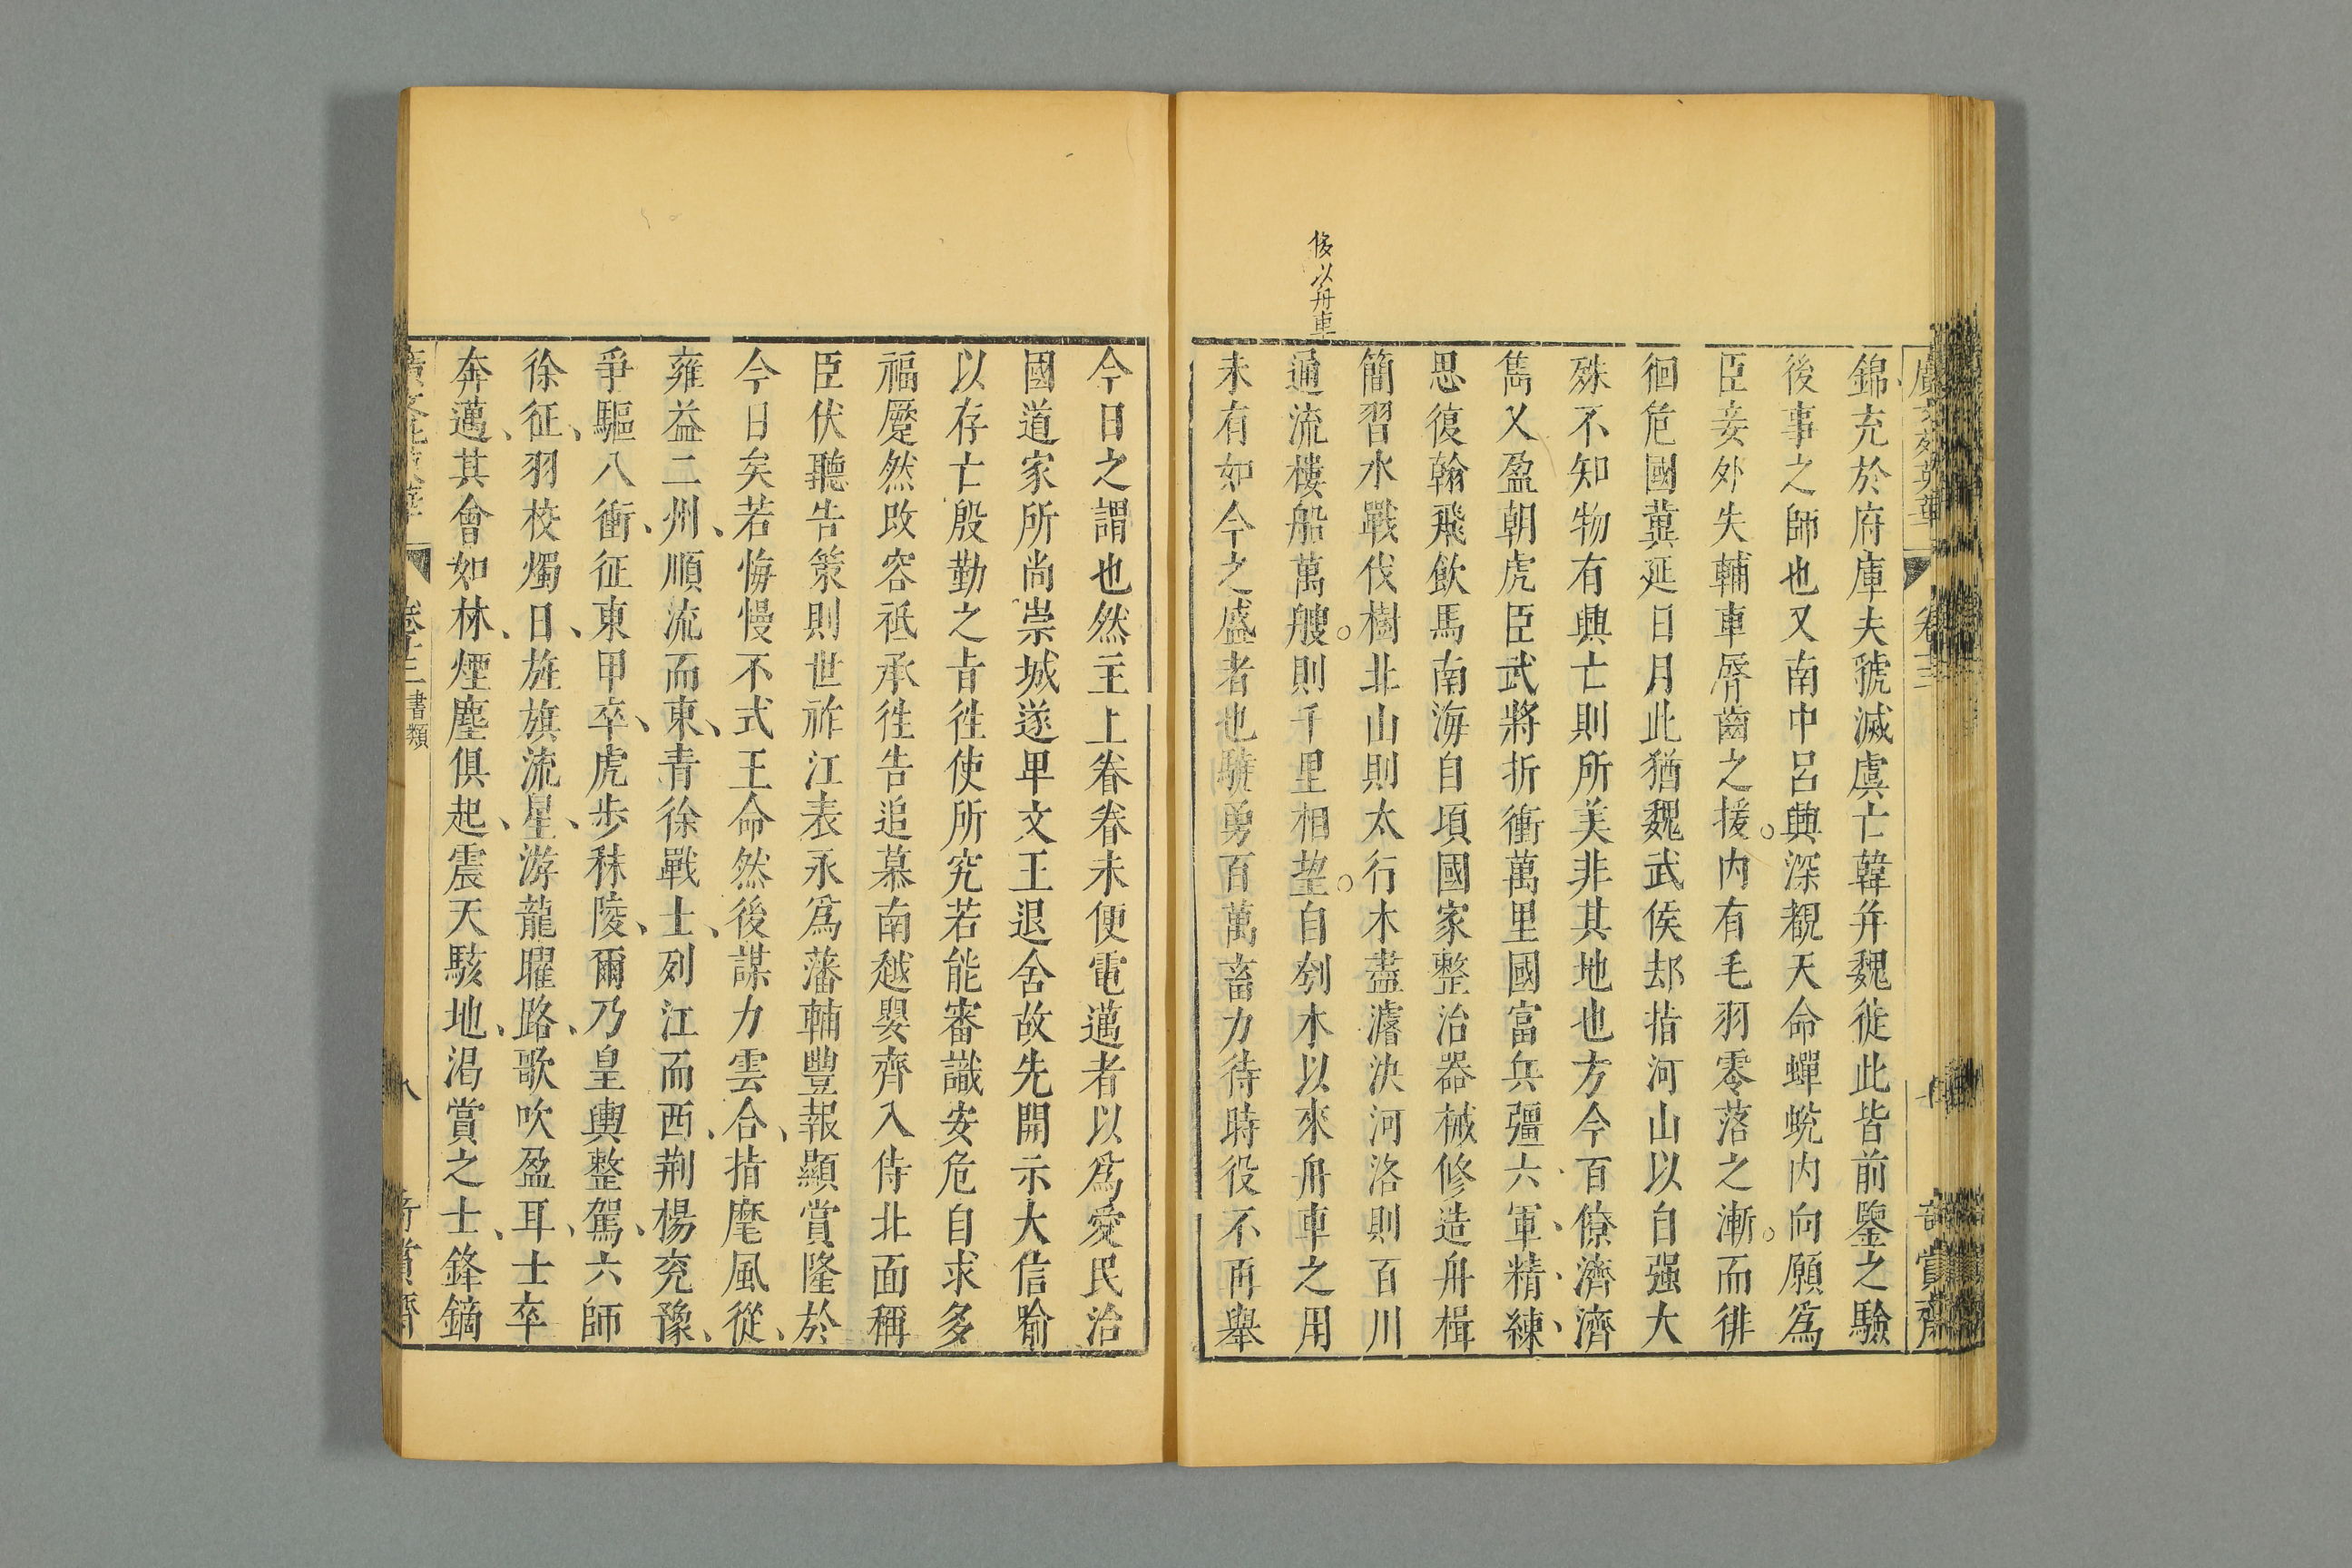 後以舟車
錦充於府庫夫虢滅虞亡韓并魏徙此皆前鑒之驗
後事之師也又南中呂興深覩天命蟬蛻内向願爲
臣妾外失輔車脣齒之援○内有毛羽零落之漸○而徘
徊危國冀延日月此猶魏武侯却指河山以自强大
殊不知物有興亡則所美非其地也方今百僚濟濟
雋乂盈朝虎臣武將折衝萬里國富兵彊六軍、精、練、
思復翰飛飲馬南海自項國家整治器械修造舟楫
簡習水戰伐樹北山則太行木盡濬決河洛則百川
通流樓船萬艘○則千里相望○自刳木以來舟車之用
未有如今之盛者也驍勇百萬畜力待時役不再舉
今日之謂也然主上眷眷未便電邁者以爲愛民治
國道家所尚崇城遂卑文王退舍故先開示大信喻
以存亡殷勤之旨徃使所究若能審識安危自求多
福蹷然改容祗承徃告追慕南越嬰齊入侍北面稱
臣伏聽告策則世祚江表永爲藩輔豐報顯賞隆於
今日矣若侮慢不式王命然後謀力雲合、指麾風從、
雍益二州、順流而東、青徐戰士、列江而西、荆楊兖豫、
爭驅八衝、征東甲卒、虎步秣陵、爾乃皇輿整駕、六師
徐征、羽校燭日、旌旗流星、游龍曜路、歌吹盈耳、士卒
奔邁、其會如林、煙塵俱起、震天駭地、渴賞之士、鋒鏑
書類
八